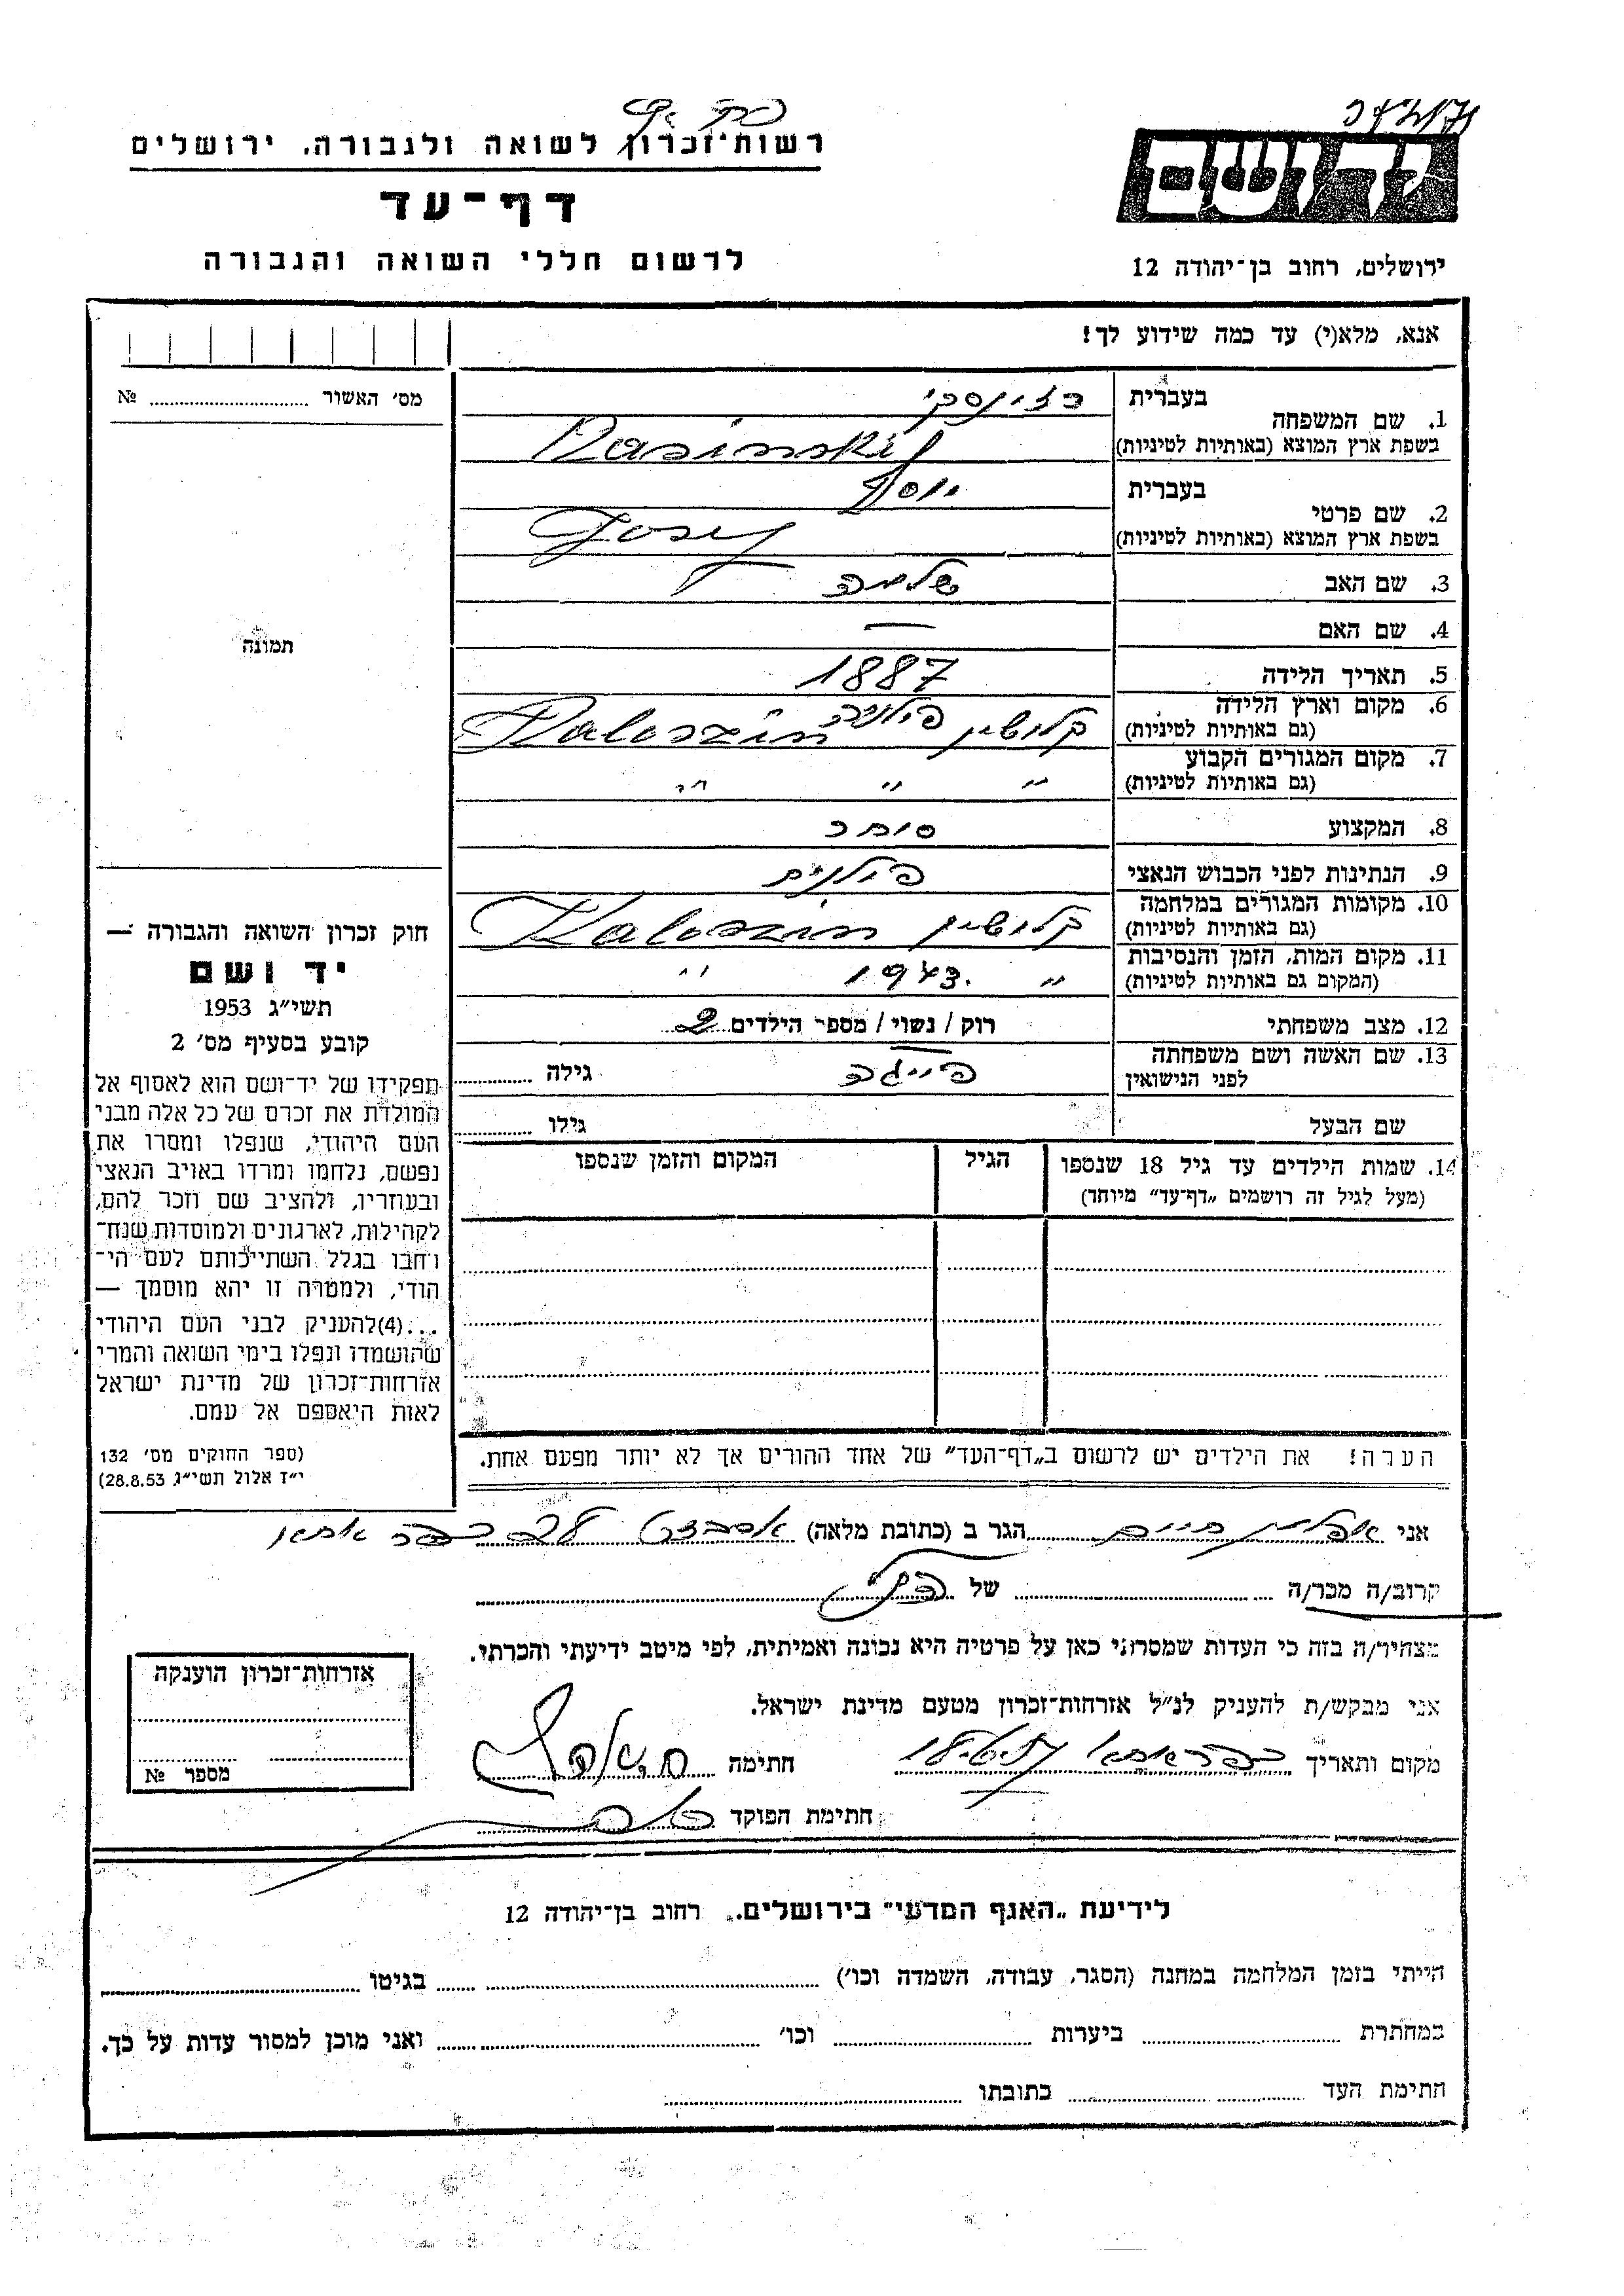 רשות־זכרון לשואה ולגבורה, ירושלים
דף־עד
לרשום חללי השואה והגבורה
יד ושם
ירושלים, רחוב בן־יהודה 12
אנא, מלא(י) עד כמה שידוע לך!
מס׳ האשור № 
תמונה
1. שם המשפחה
בעברית
Rasinski
בשפת ארץ המוצא (באותיות לטיניות)
2. שם פרטי
בעברית יוסף
בשפת ארץ המוצא (באותיות לטיניות) Josef
3. שם האב שלמה
4. שם האם —
5. תאריך הלידה 1887
6. מקום וארץ הלידה (גם באותיות לטיניות) קלושין פולניה Kaloszin
7. מקום המגורים הקבוע (גם באותיות לטיניות) " " "
8. המקצוע סוחר
9. הנתינות לפני הכבוש הנאצי פולנית
10. מקומות המגורים במלחמה (גם באותיות לטיניות) קלושין Kaloszin
11. מקום המות, הזמן והנסיבות (המקום גם באותיות לטיניות) " 1943. "
12. מצב משפחתי רוק / נשוי / מספר הילדים 2
13. שם האשה ושם משפחתה לפני הנישואין פייגה גילה
שם הבעל גילו
14. שמות הילדים עד גיל 18 שנספו (מעל לגיל זה רושמים „דף־עד” מיוחד)
הגיל
המקום והזמן שנספו
הערה! את הילדים יש לרשום ב„דף־העד” של אחד ההורים אך לא יותר מפעם אחת.
חוק זכרון השואה והגבורה —
יד ושם
תשי״ג 1953
קובע בסעיף מס׳ 2
תפקידו של יד־ושם הוא לאסוף אל
המולדת את זכרם של כל אלה מבני
העם היהודי, שנפלו ומסרו את
נפשם, נלחמו ומרדו באויב הנאצי
ובעוזריו, ולהציב שם וזכר להם,
לקהילות, לארגונים ולמוסדות שנח־
רחבו בגלל השתייכותם לעם הי־
הודי, ולמטרה זו יהא מוסמך —
...(4)להעניק לבני העם היהודי
שהושמדו ונפלו בימי השואה והמרי
אזרחות־זכרון של מדינת ישראל
לאות היאספם אל עמם.
(ספר החוקים מס׳ 132
י״ז אלול תשי״ג 28.8.53)
אני חיים הגר ב (כתובת מלאה) כפר אתא
קרוב/ה מכר/ה של
מצהיר/ה בזה כי העדות שמסרתי כאן על פרטיה היא נכונה ואמיתית, לפי מיטב ידיעתי והכרתי.
אני מבקש/ת להעניק לנ״ל אזרחות־זכרון מטעם מדינת ישראל.
מקום ותאריך כפר אתא חתימה
חתימת הפוקד
אזרחות־זכרון הוענקה
מספר №
לידיעת „האגף המדעי” בירושלים, רחוב בן־יהודה 12
הייתי בזמן המלחמה במחנה (הסגר, עבודה, השמדה וכו׳) בגיטו
במחתרת ביערות וכו׳ ואני מוכן למסור עדות על כך.
חתימת העד כתובתו